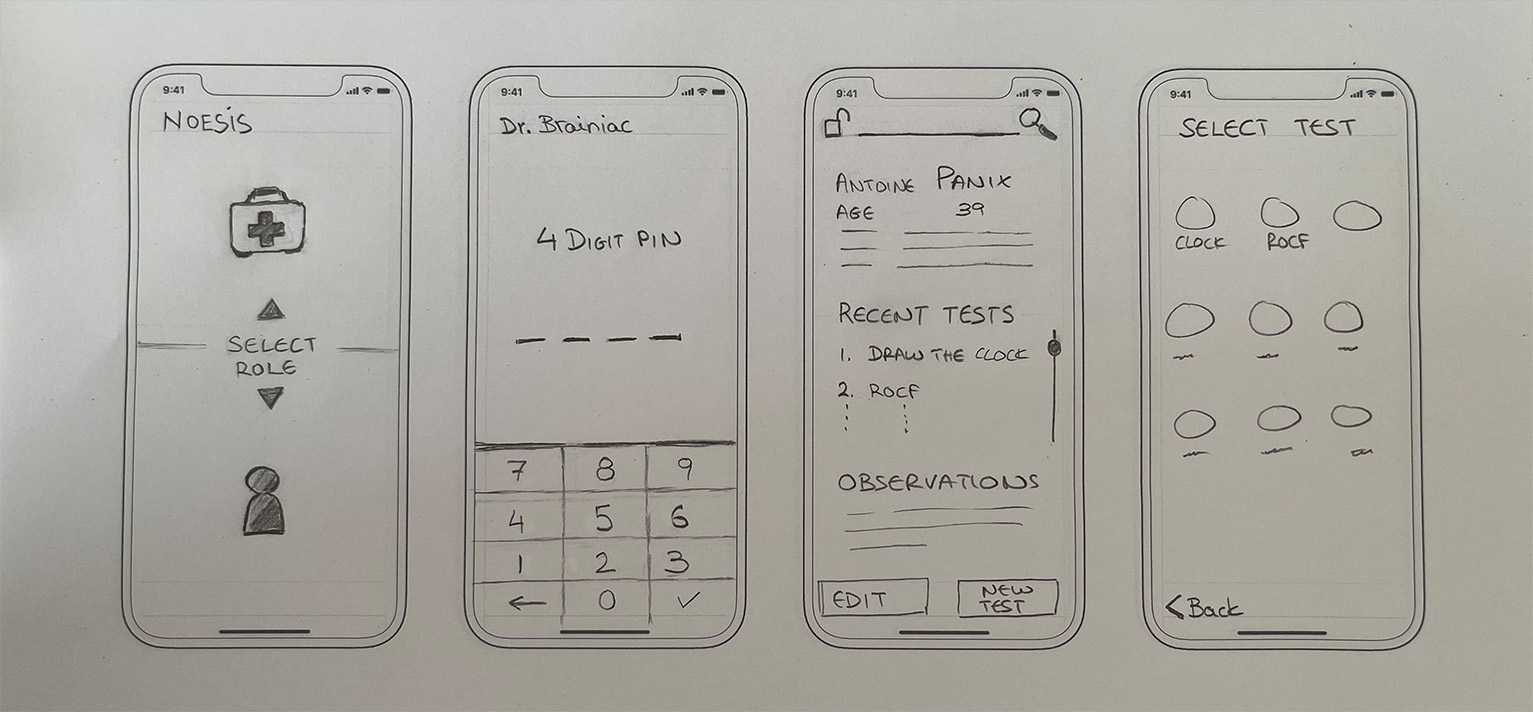 9:41
NOESIS
SELECT
ROLE
9:41
Dr. Brainiac
4 DIGIT PIN
7 8 9
4 5 6
1 2 3
← 0 ✓
9:41
ANTOINE PANIX
AGE 39
RECENT TESTS
1. DRAW THE CLOCK
2. ROCF
OBSERVATIONS
EDIT
NEW
TEST
9:41
SELECT TEST
CLOCK ROCF
< Back